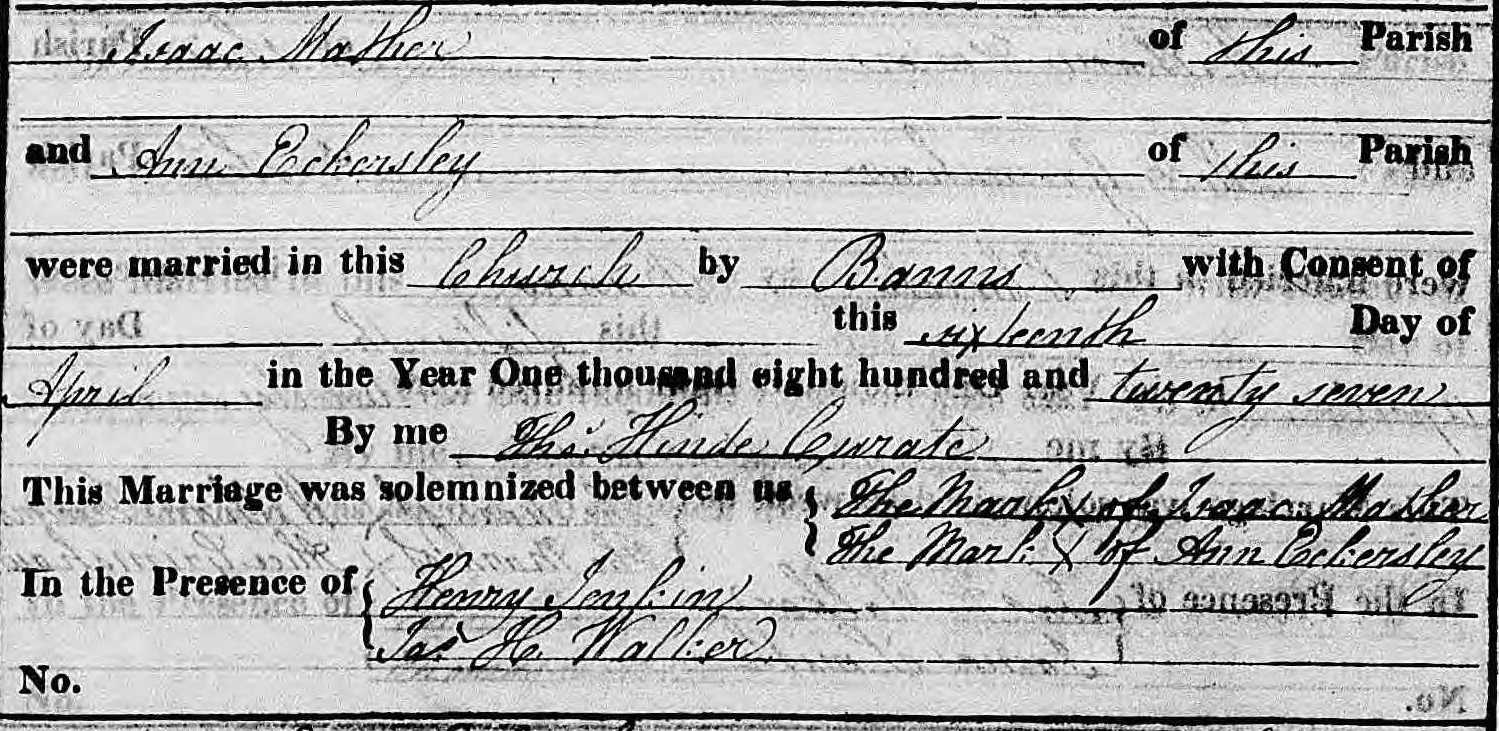 Isaac Mather of this Parish
and Ann Eckersley of this Parish
were married in this Church by Banns with Consent of
this sixteenth Day of
April in the Year One thousand eight hundred and twenty seven
By me Thos. Hinde Curate
This Marriage was solemnized between us { The Mark X of Isaac Mather
The Mark X of Ann Eckersley
In the Presence of { Henry Jenkin
Jas H. Walker
No.